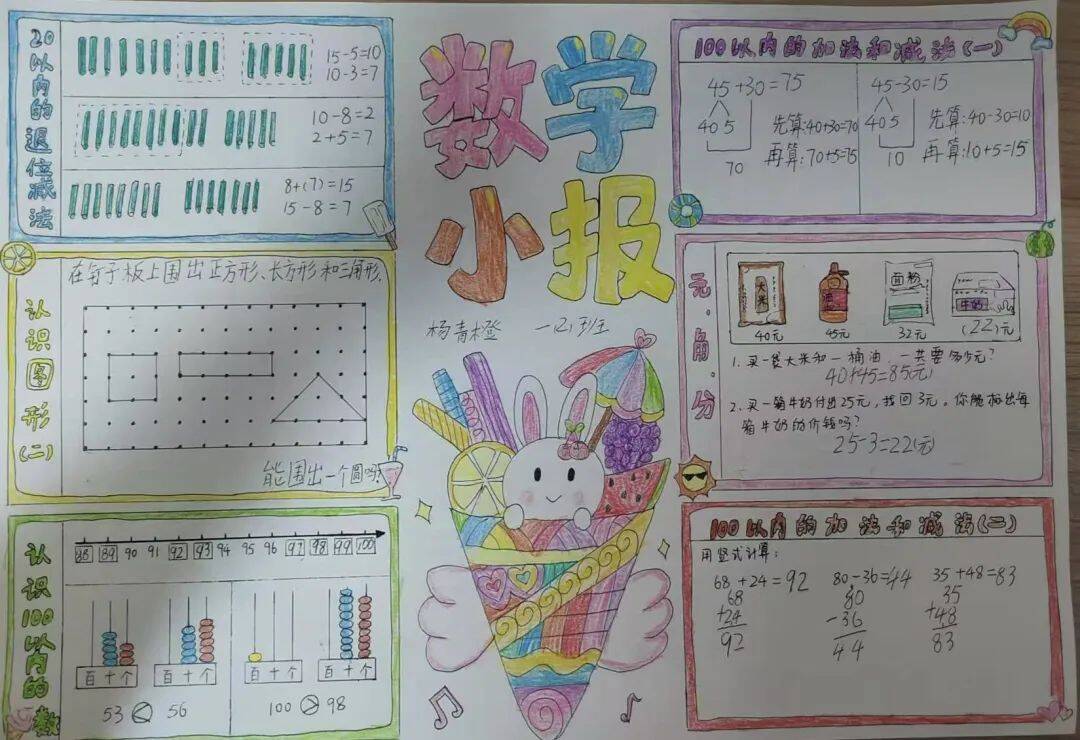 数学
小报
杨青橙 一(2)班
20以内的退位减法
15-5=10
10-3=7
10-8=2
2+5=7
8+(7)=15
15-8=7
认识图形(二)
在钉子板上围出正方形、长方形和三角形.
能围出一个圆吗?
认识100以内的数
88 89 90 91 92 93 94 95 96 97 98 99 100
百十个 百十个 百十个 百十个
53 < 56
100 > 98
100以内的加法和减法(一)
45+30=75
40 5
70
先算:40+30=70
再算:70+5=75
45-30=15
40 5
10
先算:40-30=10
再算:10+5=15
元.角.分
大米
油
面粉
牛奶
40元 45元 32元 (22)元
1. 买一袋大米和一桶油,一共要多少元?
40+45=85(元)
2. 买一箱牛奶付出25元,找回3元。你能标出每
箱牛奶的价钱吗?
25-3=22(元)
100以内的加法和减法(二)
用竖式计算:
68+24=92 80-36=44 35+48=83
68 80 35
+24 -36 +48
92 44 83